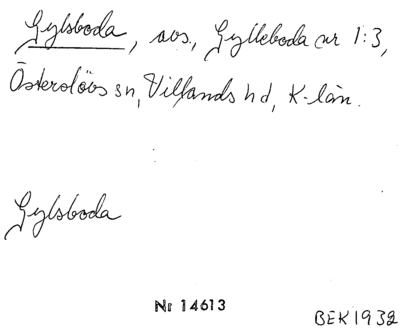 Gylsboda, avs., Gylleboda nr 1:3,
Österslövs sn, Villands hd, K-län.
Gylsboda
Nr 14613
BEK 1932